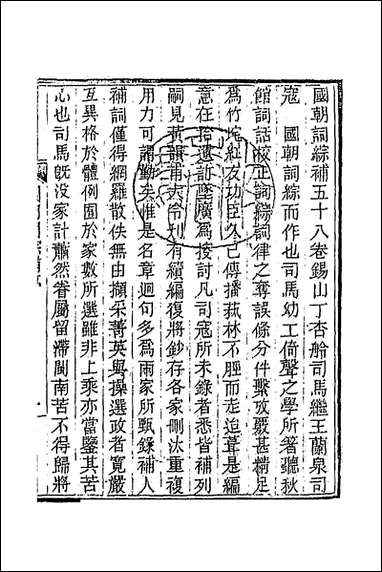 國朝詞綜補五十八卷錫山丁杏舲司馬繼王蘭泉司
寇　國朝詞綜而作也司馬幼工倚聲之學所著聽秋
館詞話校正詞綜詞律之奪誤條分件繫攷覈甚精足
為竹垞紅友功臣久已傳播萟林不脛而走迨葺是編
意在拾遺訂墜廣為按討凡司寇所未錄者悉皆補列
嗣見黃韻甫大令刊有續編復將鈔存各家刪汰重複
用力可謂勤矣惟是名章迥句多為兩家所甄錄補人
補詞僅得網羅散佚無由擷采菁英與操選政者寬嚴
互異格於體例囿於家數所選雖非上乘亦當鑒其苦
心也司馬旣没家計蕭然眷屬留滯閩南苦不得歸將